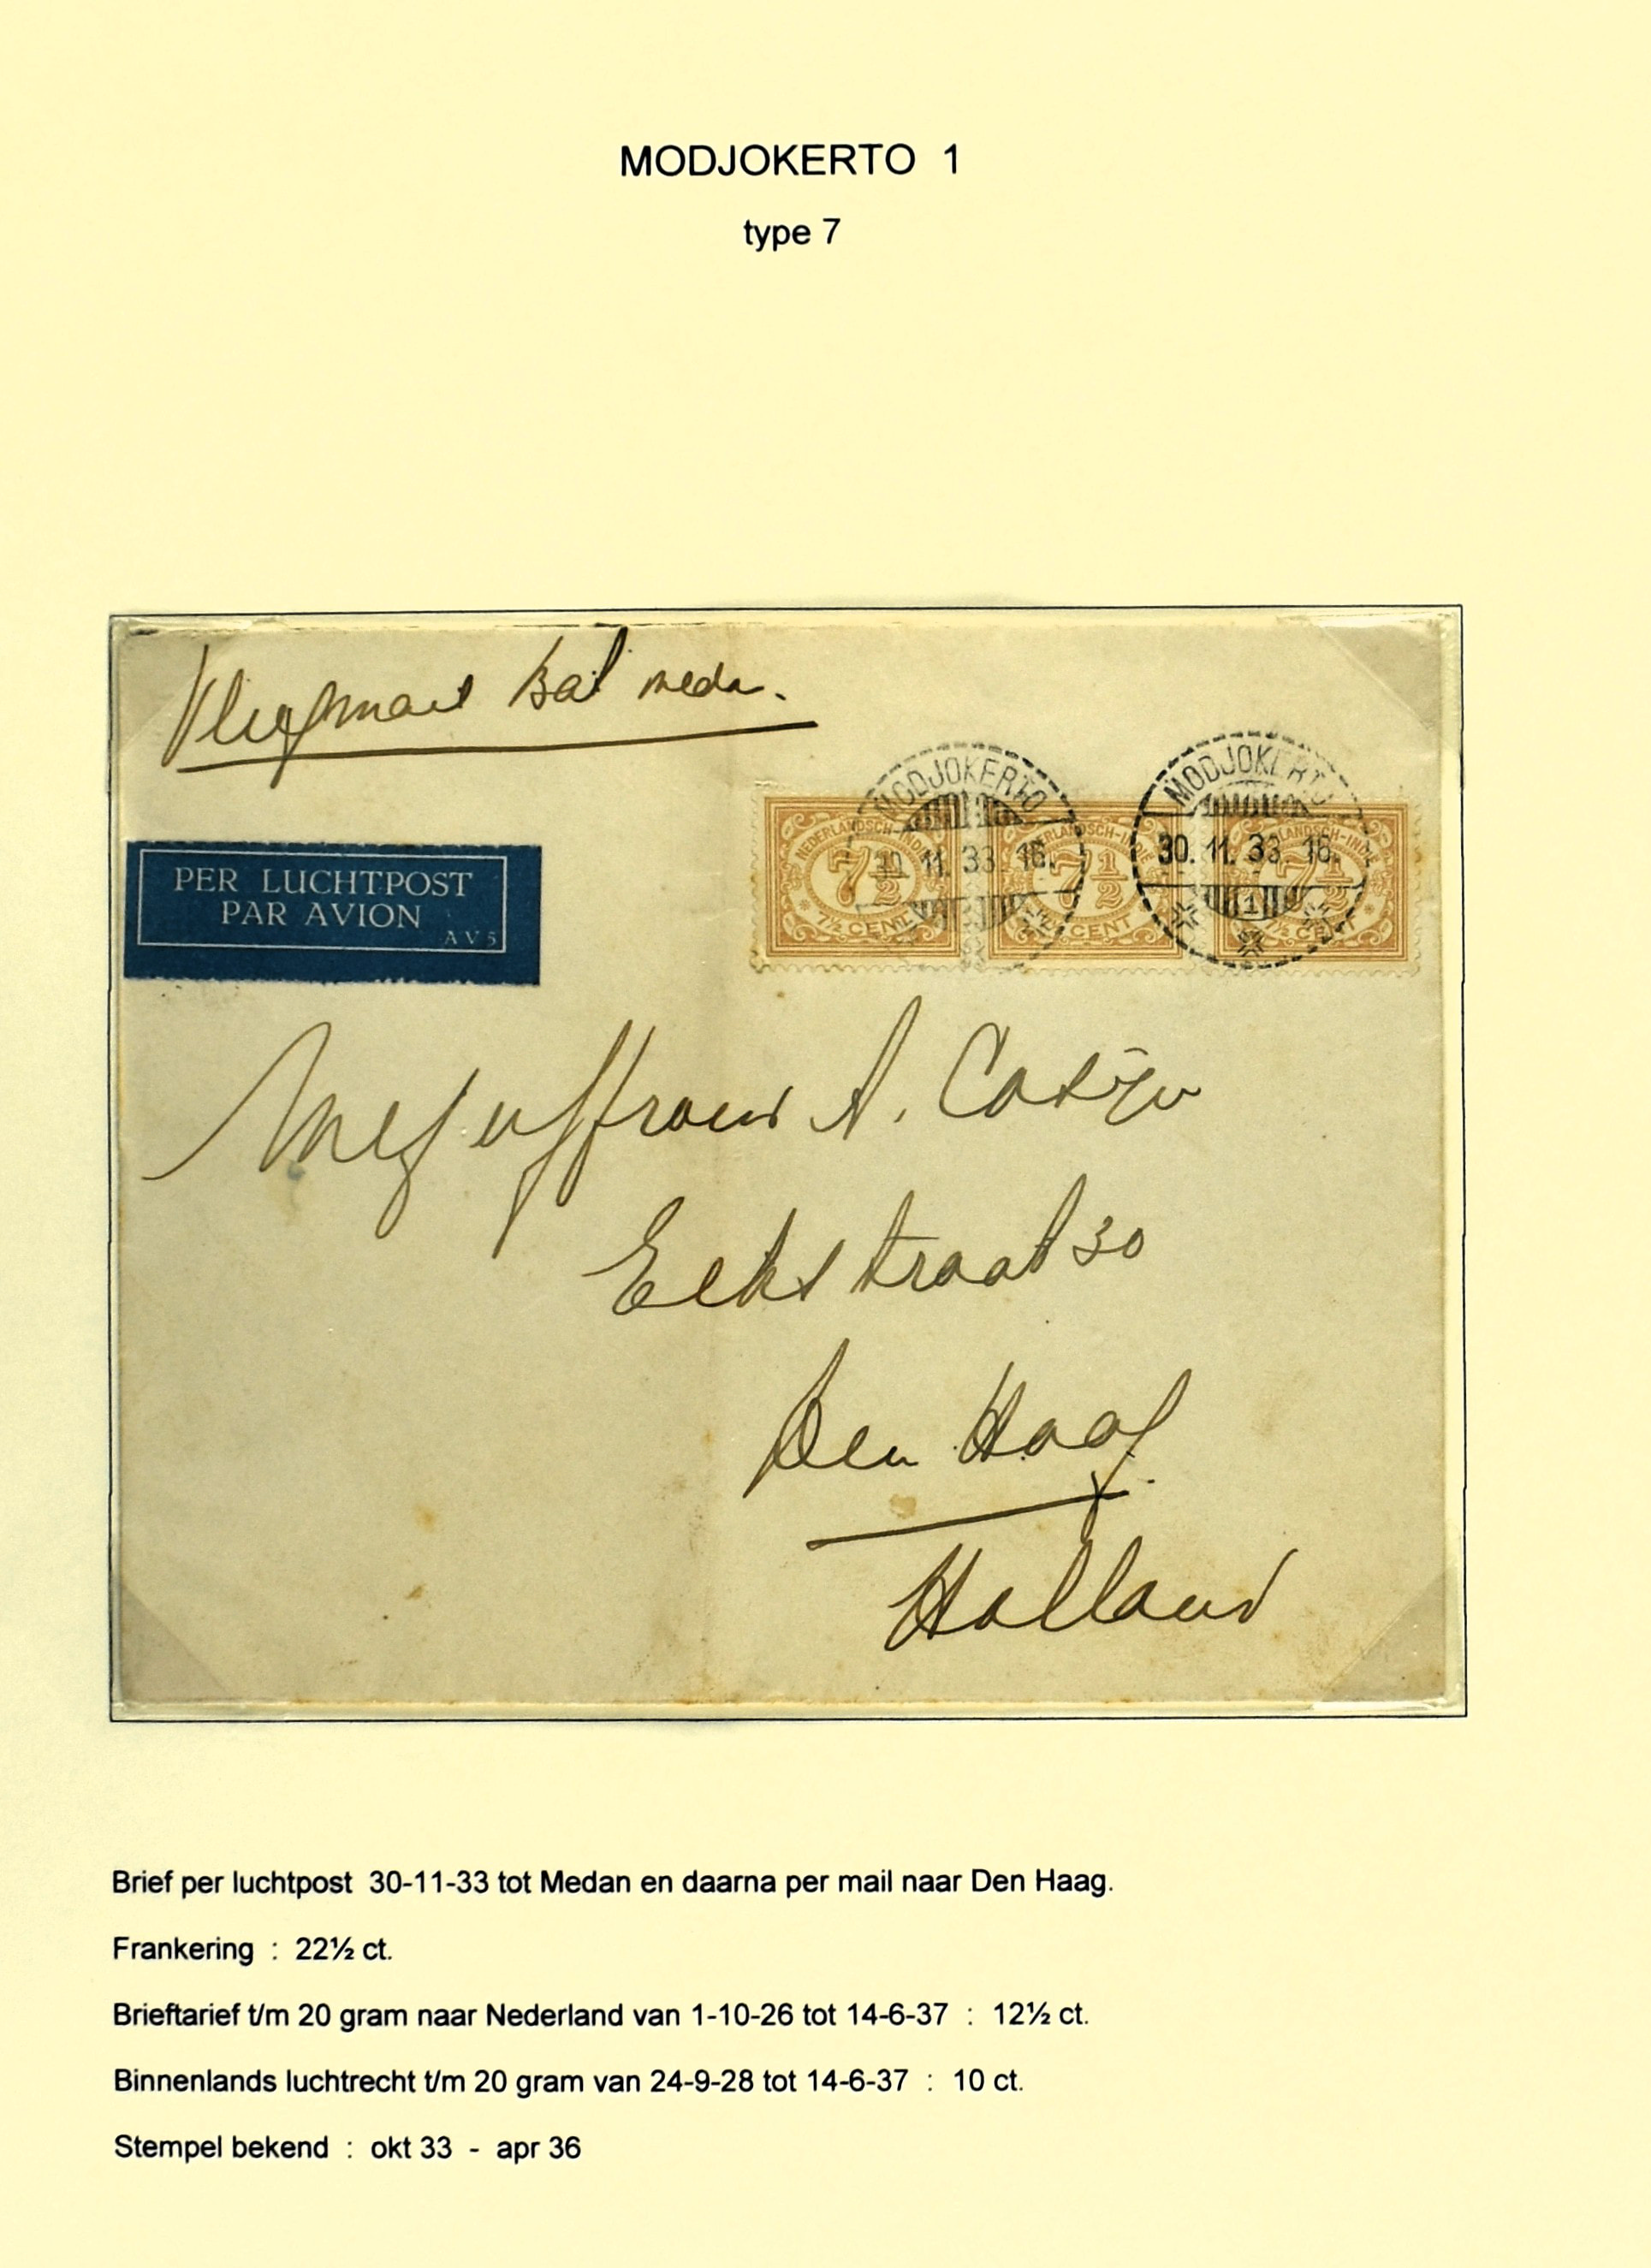 MODJOKERTO 1
type 7
Vliegmail Bat Medan.
MODJOKERTO
30.11.33.16.
MODJOKERTO
30.11.33.16.
1
NEDERLANDSCH-INDIË
7½
7½ CENT
NEDERLANDSCH-INDIË
7½
7½ CENT
NEDERLANDSCH-INDIË
7½
7½ CENT
PER LUCHTPOST
PAR AVION
AV5
Mejuffrouw A. Cosijn
Eekstraat 30
Den Haag.
Holland
Brief per luchtpost 30-11-33 tot Medan en daarna per mail naar Den Haag.
Frankering : 22½ ct.
Brieftarief t/m 20 gram naar Nederland van 1-10-26 tot 14-6-37 : 12½ ct.
Binnenlands luchtrecht t/m 20 gram van 24-9-28 tot 14-6-37 : 10 ct.
Stempel bekend : okt 33 - apr 36